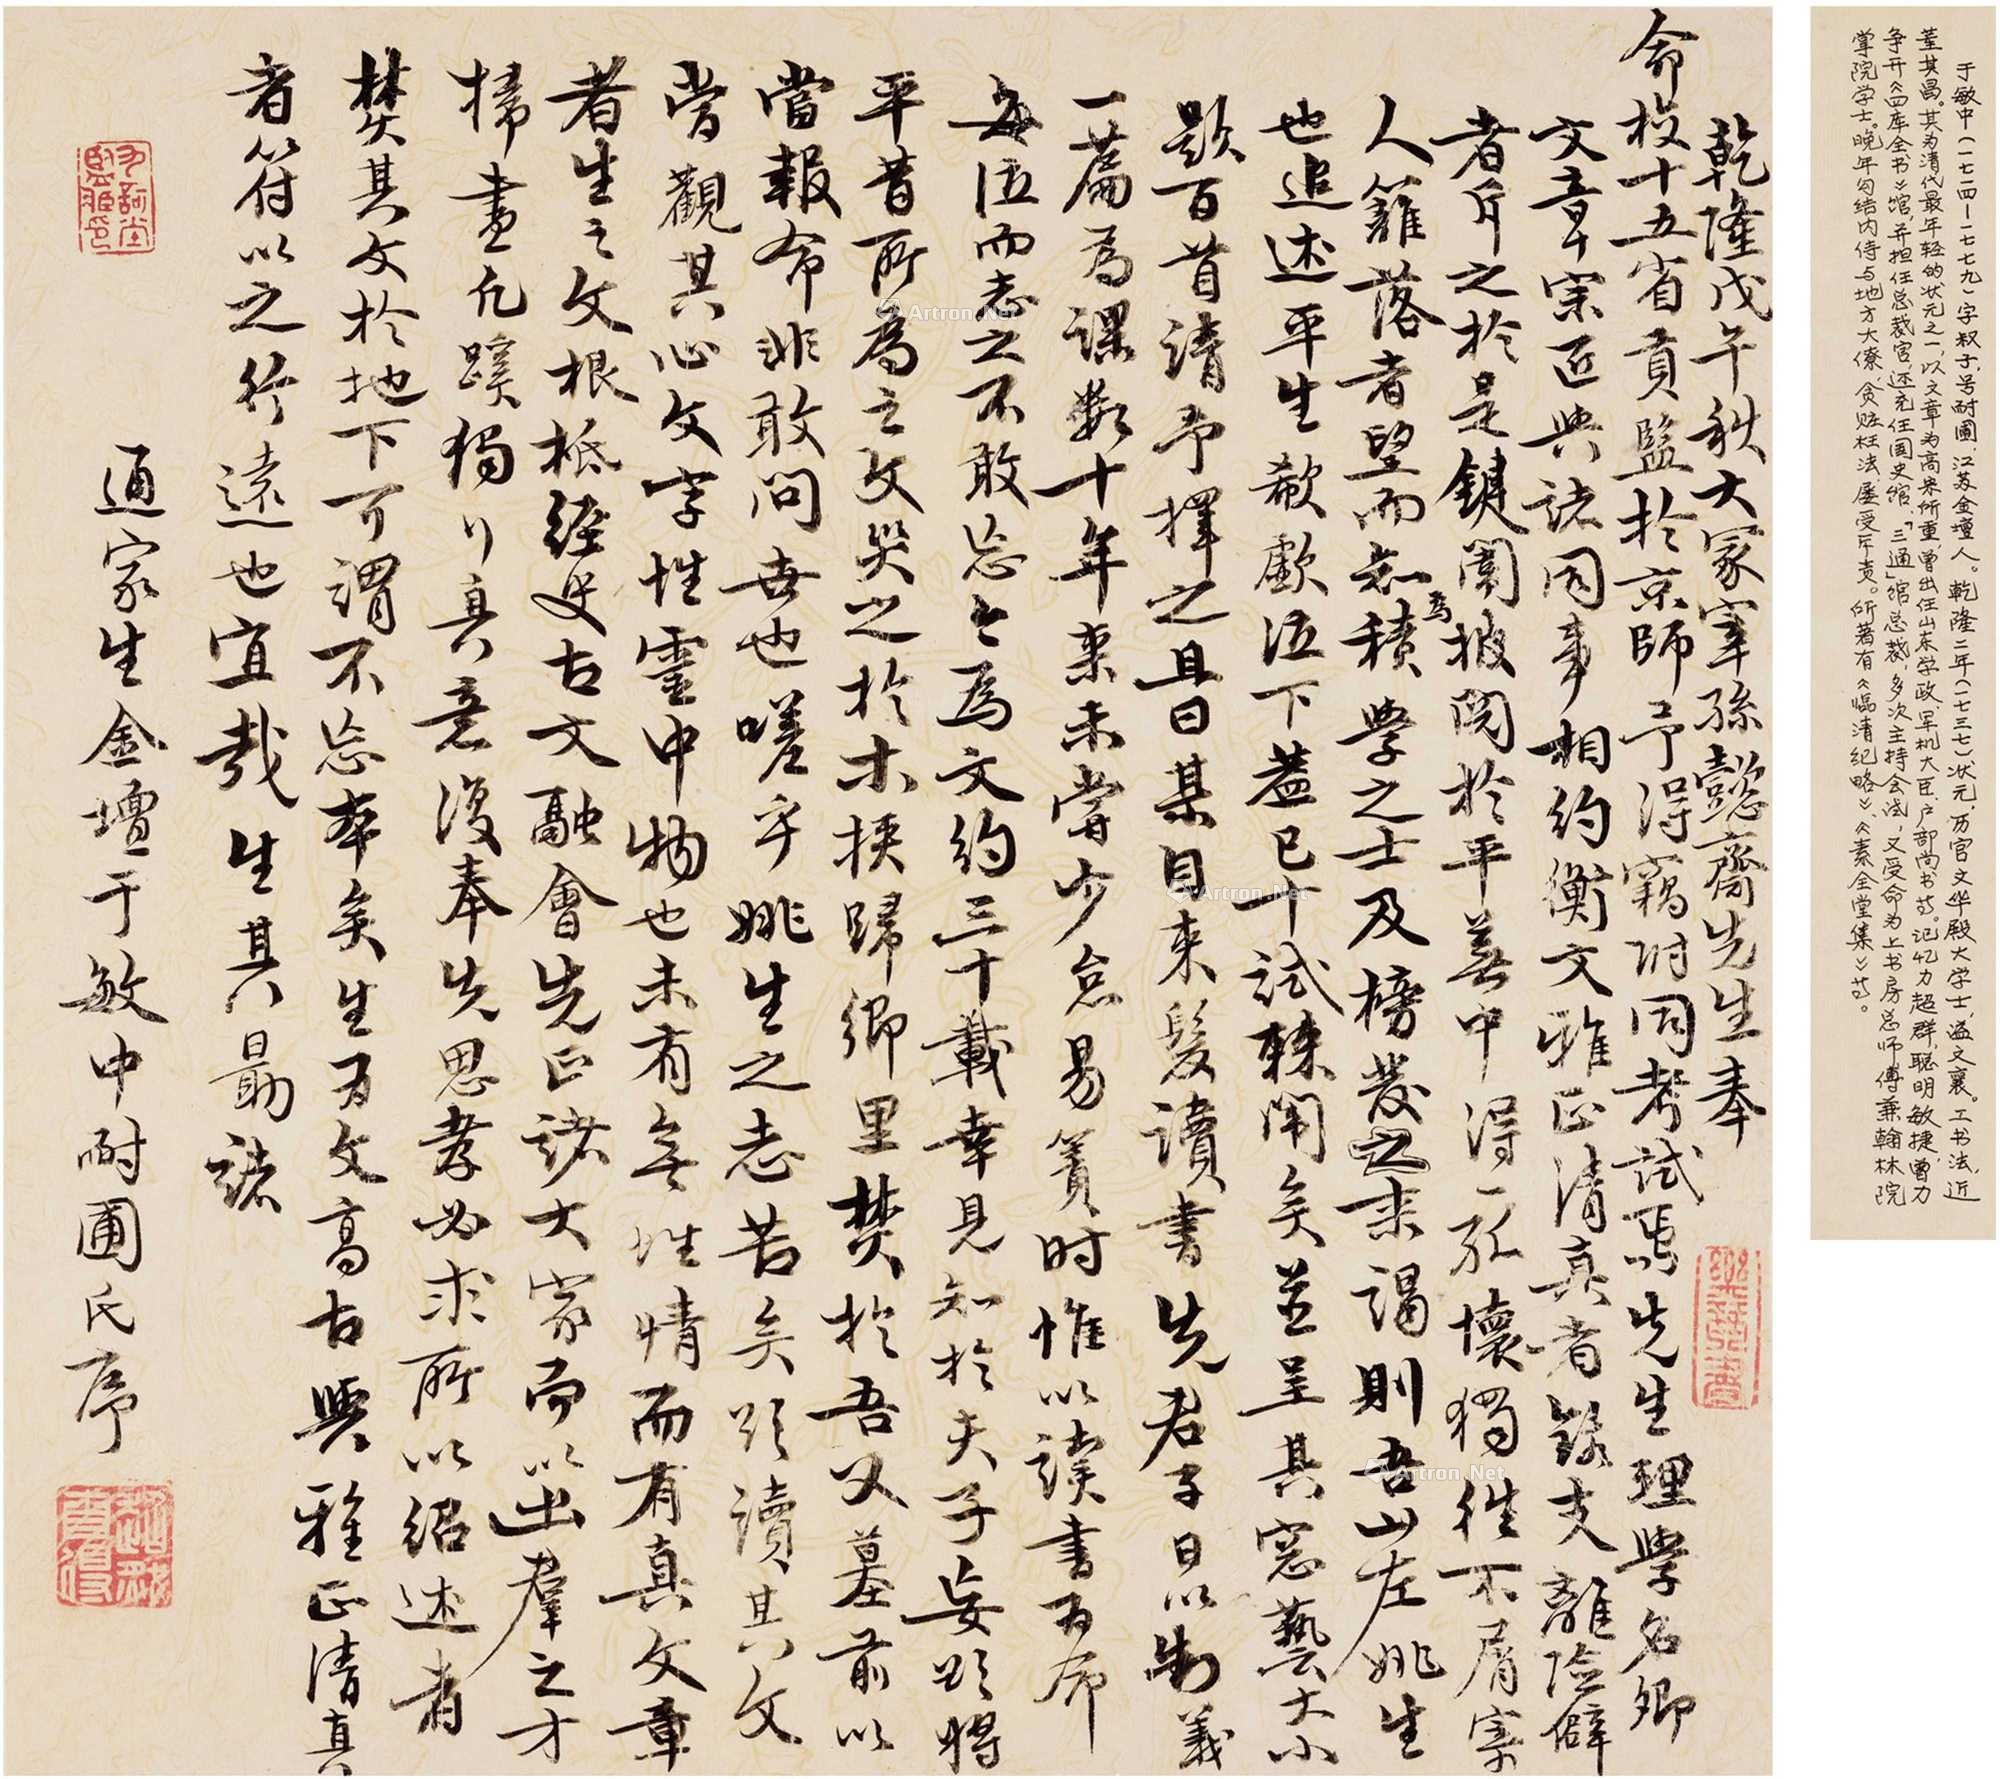 乾隆戊午秋大冢宰孫懿齋先生奉
命校十五省貢監於京師予得竊附同考試焉先生理學名卿
文章宗匠與諸同事相約衡文雅正清真者錄支離險僻
者斥之於是鍵闈披閱於平蕪中得一硎壞獨往不屑寄
人籬落者望而知為積學之士及榜發來謁則吾山左姚生
也追述平生欷歔泣下蓋已十試棘闈矣並呈其窓藝大小
題百首請予擇之且曰某自束髮讀書先君子日以制義
一篇為課數十年來未嘗少怠易簀時惟以讀書為命
每泣而志之不敢忘也為文約三十載幸見知於夫子妄欲將
平昔所為之文哭之於木挾歸鄉里焚於吾父墓前以
當報命非敢問世也嗟乎姚生之志苦矣欲讀其文
嘗觀其心文字性靈中物也未有無性情而有真文章
者生之文根柢經史古文融會先正諸大家而以出羣之才
掃盡凡蹊獨行真意復奉先思孝必求所以紹述者
焚其文於地下可謂不忘本矣生為文高古與雅正清真
者符以之行遠也宜哉生其勗諸
通家生金壇于敏中耐圃氏序
于敏中（一七一四—一七七九）字叔子，号耐圃，江苏金壇人。乾隆二年（一七三七）状元，历官文华殿大学士，谥文襄。工书法，近
董其昌。其为清代最年轻的状元之一，以文章为高宗所重，曾出任山东学政、军机大臣、户部尚书等。记忆力超群，聪明敏捷，曾力
争开《四库全书》馆，并担任总裁官，还充任国史馆、「三通」馆总裁，多次主持会试，又受命为上书房总师傅兼翰林院
掌院学士。晚年勾结内侍与地方大僚，贪赃枉法，屡受斥责。所著有《临清纪略》、《素余堂集》等。
Artron.Net
Artron.Net
Artron.Net